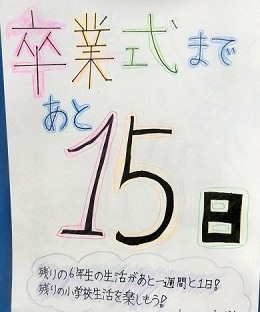 卒業式まで
あと
15日
残りの6年生の生活があと一週間と1日!
残りの小学校生活を楽しもう!